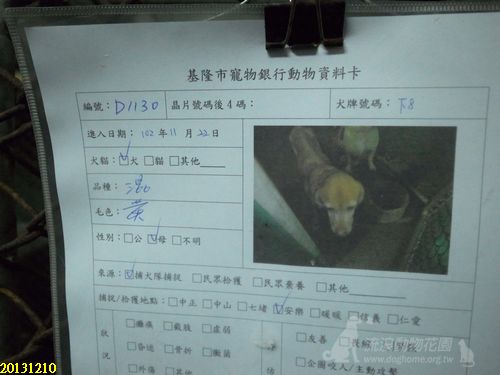 基隆市寵物銀行動物資料卡
編號：D1130 晶片號碼後4碼： 犬牌號碼：下8
進入日期：102年11月22日
犬貓：☑犬 □貓 □其他
品種：混
毛色：黃
性別：□公 ☑母 □不明
來源：☑捕犬隊捕捉 □民眾拾獲 □民眾棄養 □其他
捕捉/拾獲地點：□中正 □中山 □七堵 ☑安樂 □暖暖 □信義 □仁愛
狀況 □癱瘓 □截肢 □虛弱 □友善
□昏迷 □骨折 □黴菌
□外傷 □企圖咬人/主動攻擊
流浪動物花園
www.doghome.org.tw
20131210